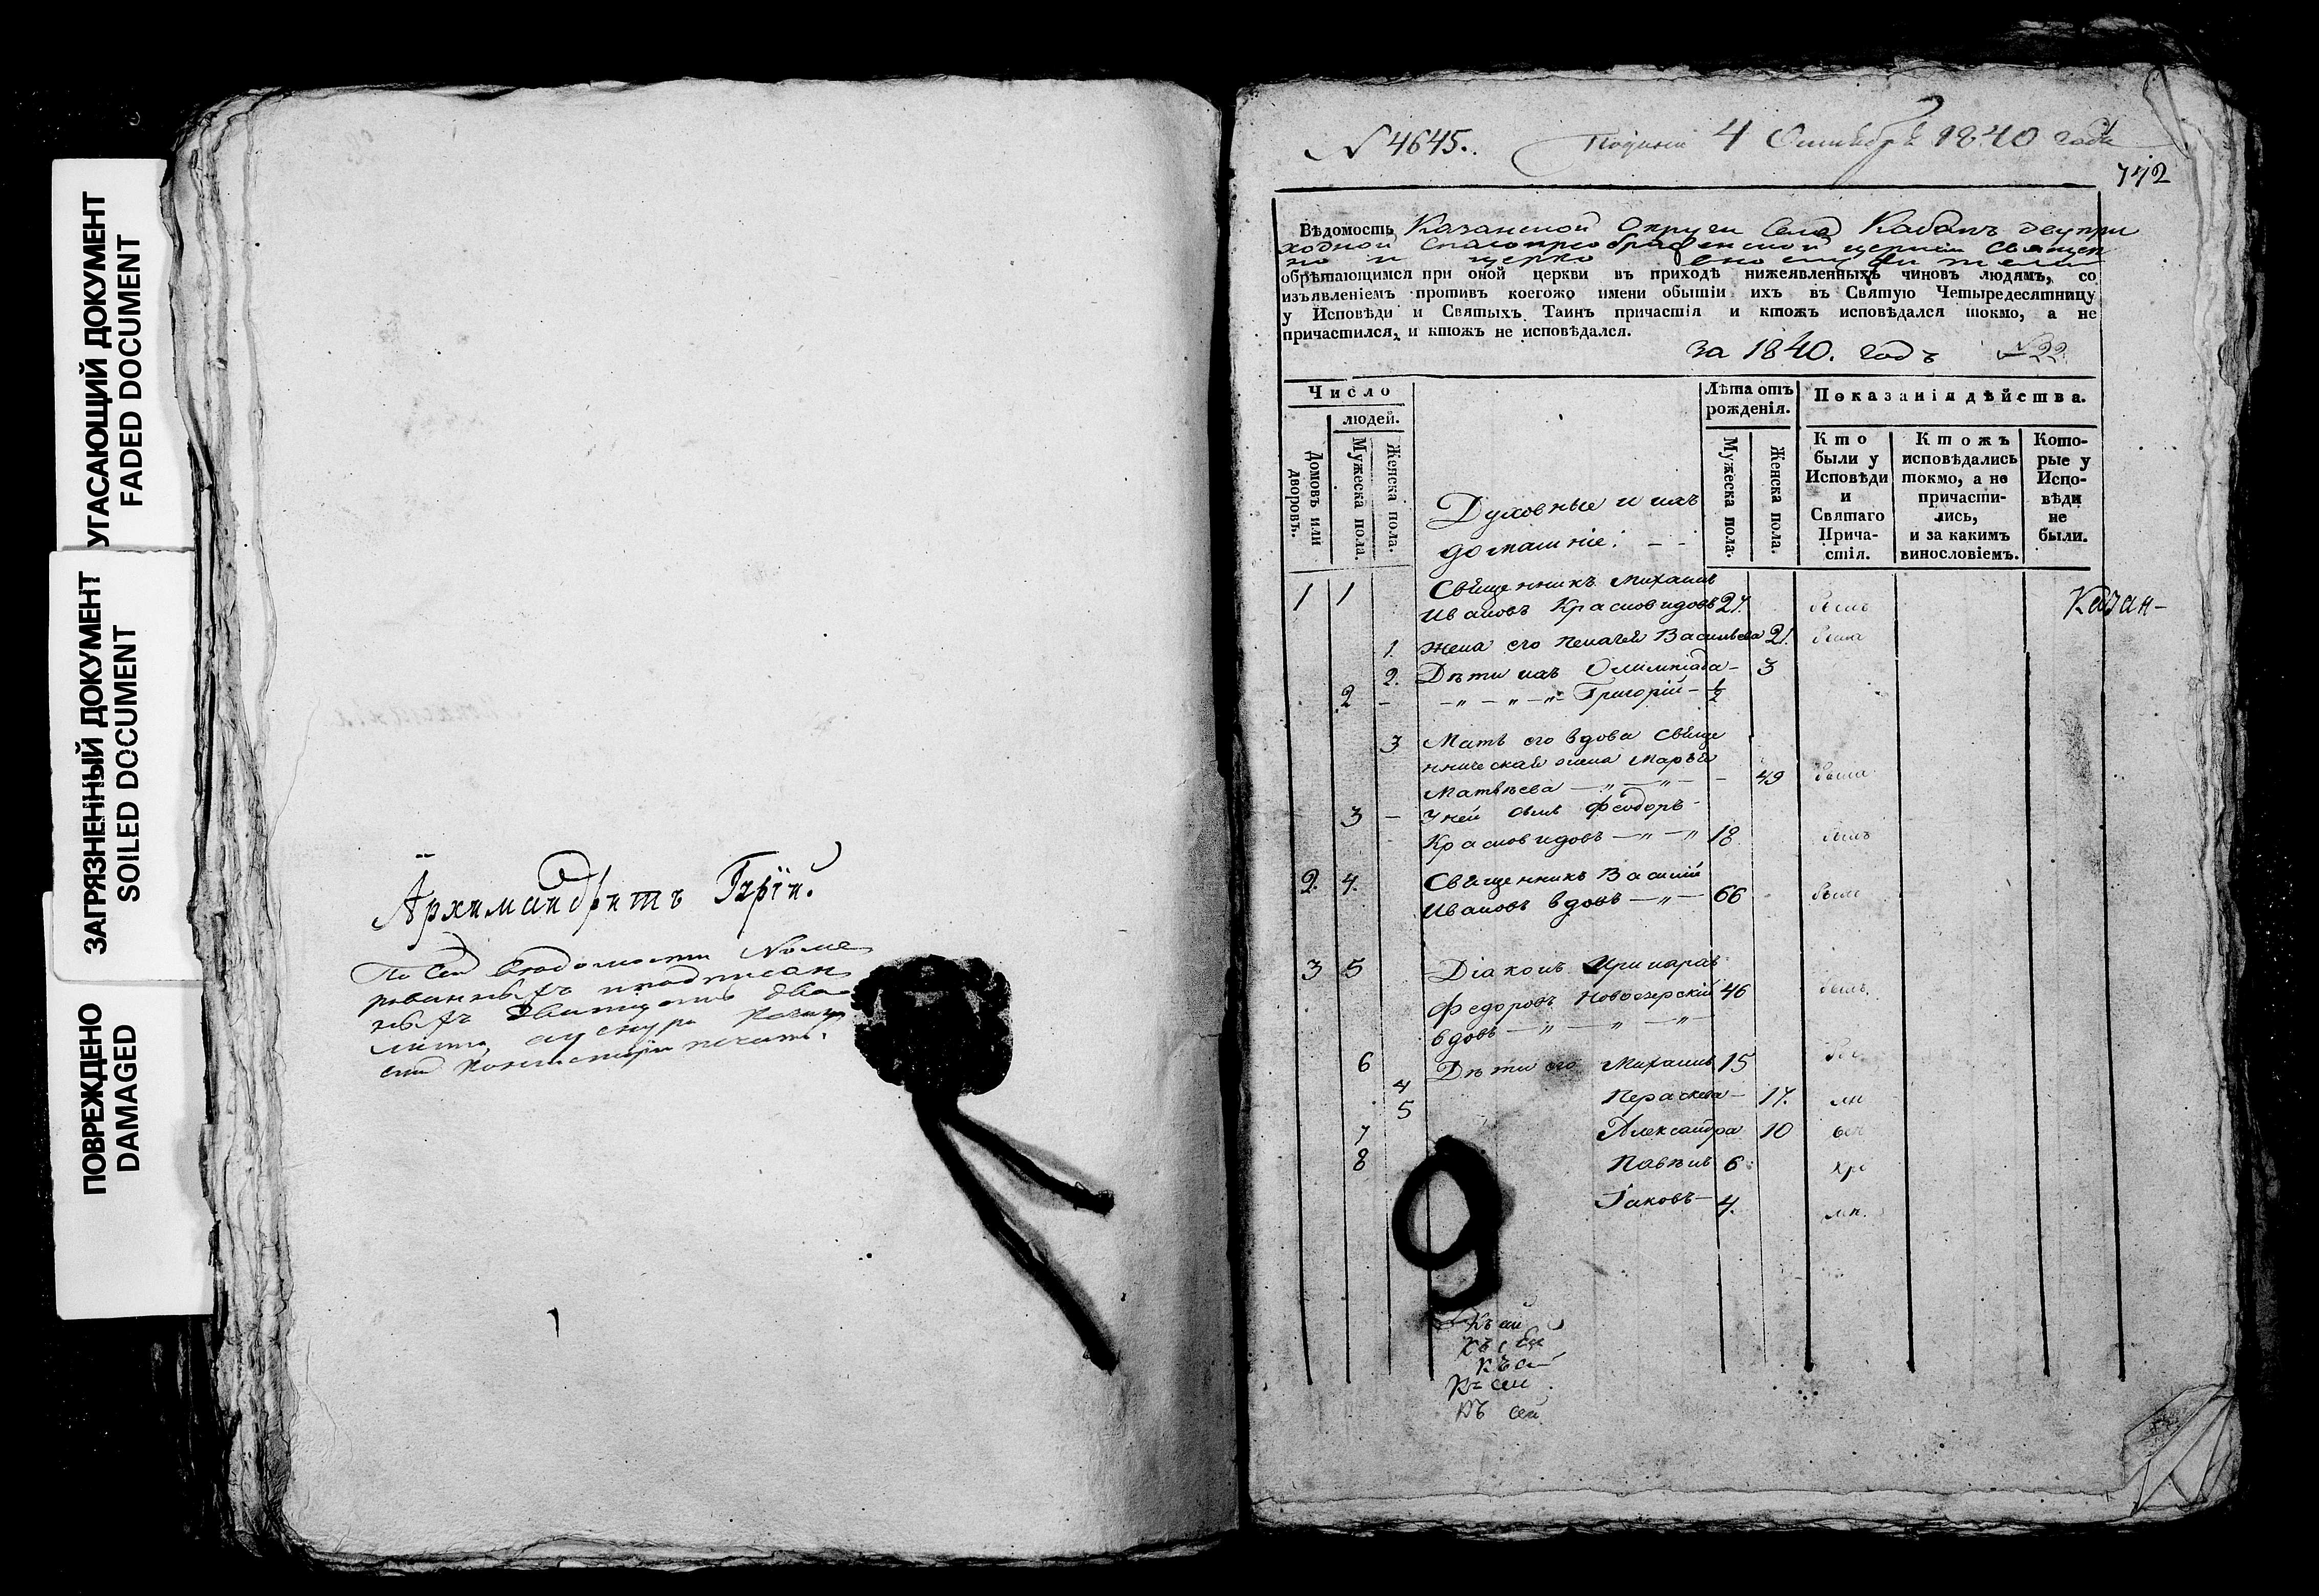 УГАСАЮЩИЙ ДОКУМЕНТ
FADED DOCUMENT
ЗАГРЯЗНЕННЫЙ ДОКУМЕНТ
SOILED DOCUMENT
ПОВРЕЖДЕНО
DAMAGED
Архимандритъ Гурій.
По сей Ведомости Номе
рованныхъ и подписан
ныхъ двенадцать два
листа,
сей Консисторіи печать.
N 4645. 4 Октября 1840 года
742
Вѣдомость Казанской Округи Села Кабанъ двупри
ходной Спасопреображенской церкви священ
но и церко служители
обрѣтающимся при оной церкви въ приходѣ нижеявленныхъ чиновъ людямъ, со
изъявленіемъ противъ коегожо имени обытіи ихъ въ Святую Четыредесятницу
у Исповѣди и Святыхъ Таинъ причастія и ктожъ исповѣдался токмо, а не
причастился, и ктожъ не исповѣдался.
за 1840. годъ N 22.
Число
людей.
Домовъ или дворовъ.
Мужеска пола.
Женска пола.
Лѣта отъ рожденія.
Мужеска пола.
Женска пола.
Показанія дѣйства.
Кто были у Исповѣди и Святаго Причастія.
Ктожъ исповѣдались токмо, а не причастились, и за какимъ винословіемъ.
Которые у Исповѣди не были.
Духовные и ихъ
домашніе. - -
1 1 Священникъ Михаилъ
Ивановъ Красновидовъ 27. былъ
Казан-
1. Жена его Пелагея Васильева 21. была
2. Дѣти ихъ Олимпіада - 3
2 - -"- "-"- Григорій - ½
3 Мать его вдова Свяще
нническая жена Марья
Матвѣева -"- -"- - 49 была
3 - У ней сынъ Феодоръ -
Красновидовъ -"- -" 18. былъ
2. 4. Священникъ Василій
Ивановъ вдовъ -"- 66 былъ
3 5 Діаконъ Принархъ
Федоровъ Новозерскій 46 былъ.
вдовъ -"- -"- -"-
6 Дѣти его Михаилъ 15
4 Параскева - 17.
5 Александра 10
7 Павелъ 6.
8 Іаковъ - 4.
Къ сей
Къ сей
Къ сей
Къ сей
Къ сей